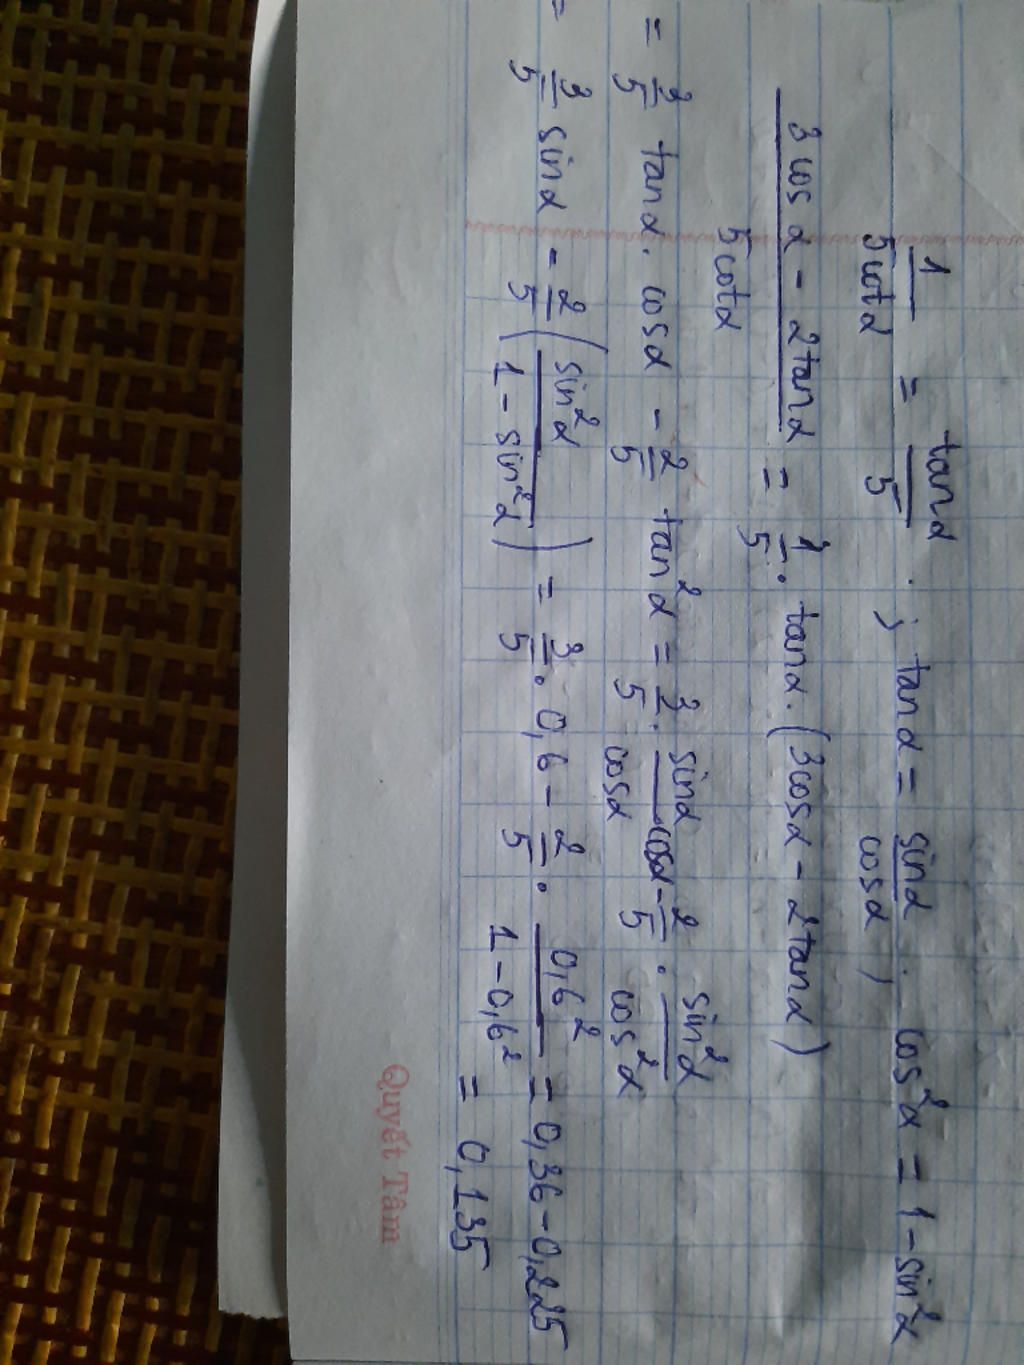 1/5cotα = tanα/5 ; tanα = sinα/cosα ; cos²α = 1 - sin²α
(3cosα - 2tanα)/5cotα = 1/5 . tanα . (3cosα - 2tanα)
= 3/5 tanα . cosα - 2/5 tan²α = 3/5 . sinα/cosα . cosα - 2/5 . sin²α/cos²α
= 3/5 sinα - 2/5 (sin²α/(1 - sin²α)) = 3/5 . 0,6 - 2/5 . 0,6²/(1 - 0,6²) = 0,36 - 0,225
= 0,135
Quyết Tâm